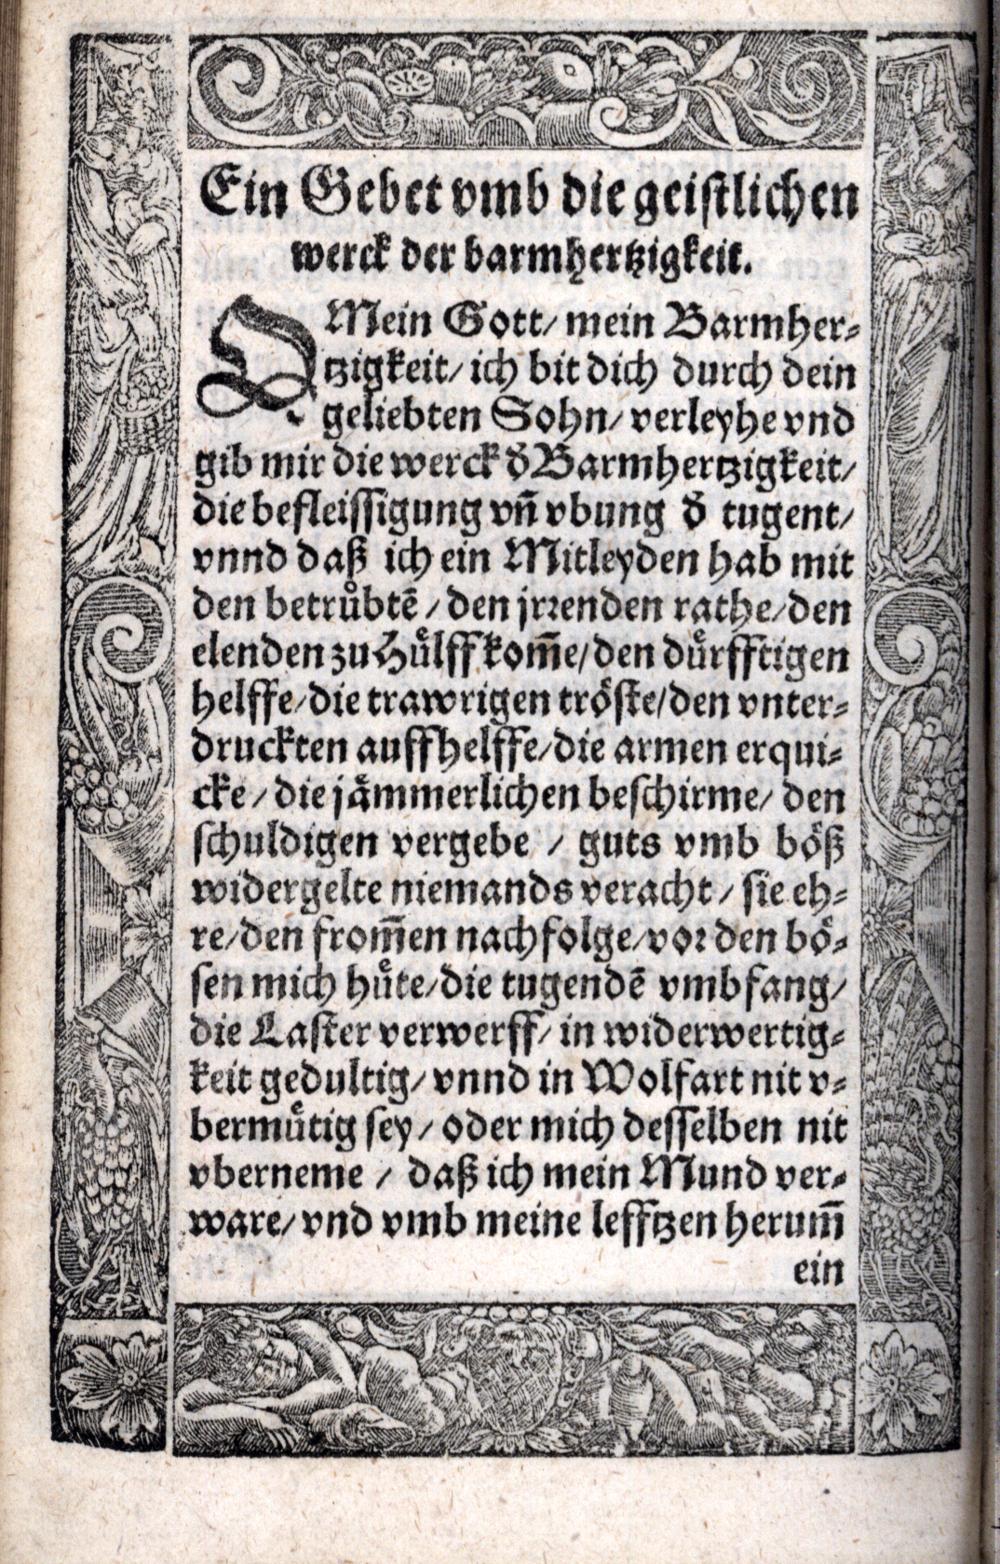 Ein Gebet vmb die geistlichen
werck der barmhertzigkeit.
O Mein Gott/ mein Barmher⸗
tzigkeit/ ich bit dich durch dein
geliebten Sohn/ verleyhe vnd
gib mir die werck d̄ Barmhertzigkeit/
die befleissigung vñ vbung d̄ tugent/
vnnd daß ich ein Mitleyden hab mit
den betrůbtē / den jrrenden rathe/ den
elenden zu Huͤlff kom̄e/ den duͤrfftigen
helffe/ die trawrigen troͤste/ den vnter⸗
druckten auffhelffe/ die armen erqui⸗
cke / die jaͤmmerlichen beschirme/ den
schuldigen vergebe / guts vmb boͤß
widergelte niemands veracht / sie eh⸗
re/ den from̄en nachfolge/ vor den boͤ⸗
sen mich huͤte/ die tugendē vmbfang/
die Laster verwerff/ in widerwertig⸗
keit gedultig/ vnnd in Wolfart nit v⸗
bermuͤtig sey / oder mich desselben nit
vberneme / daß ich mein Mund ver⸗
ware/ vnd vmb meine lefftzen herum̄
ein